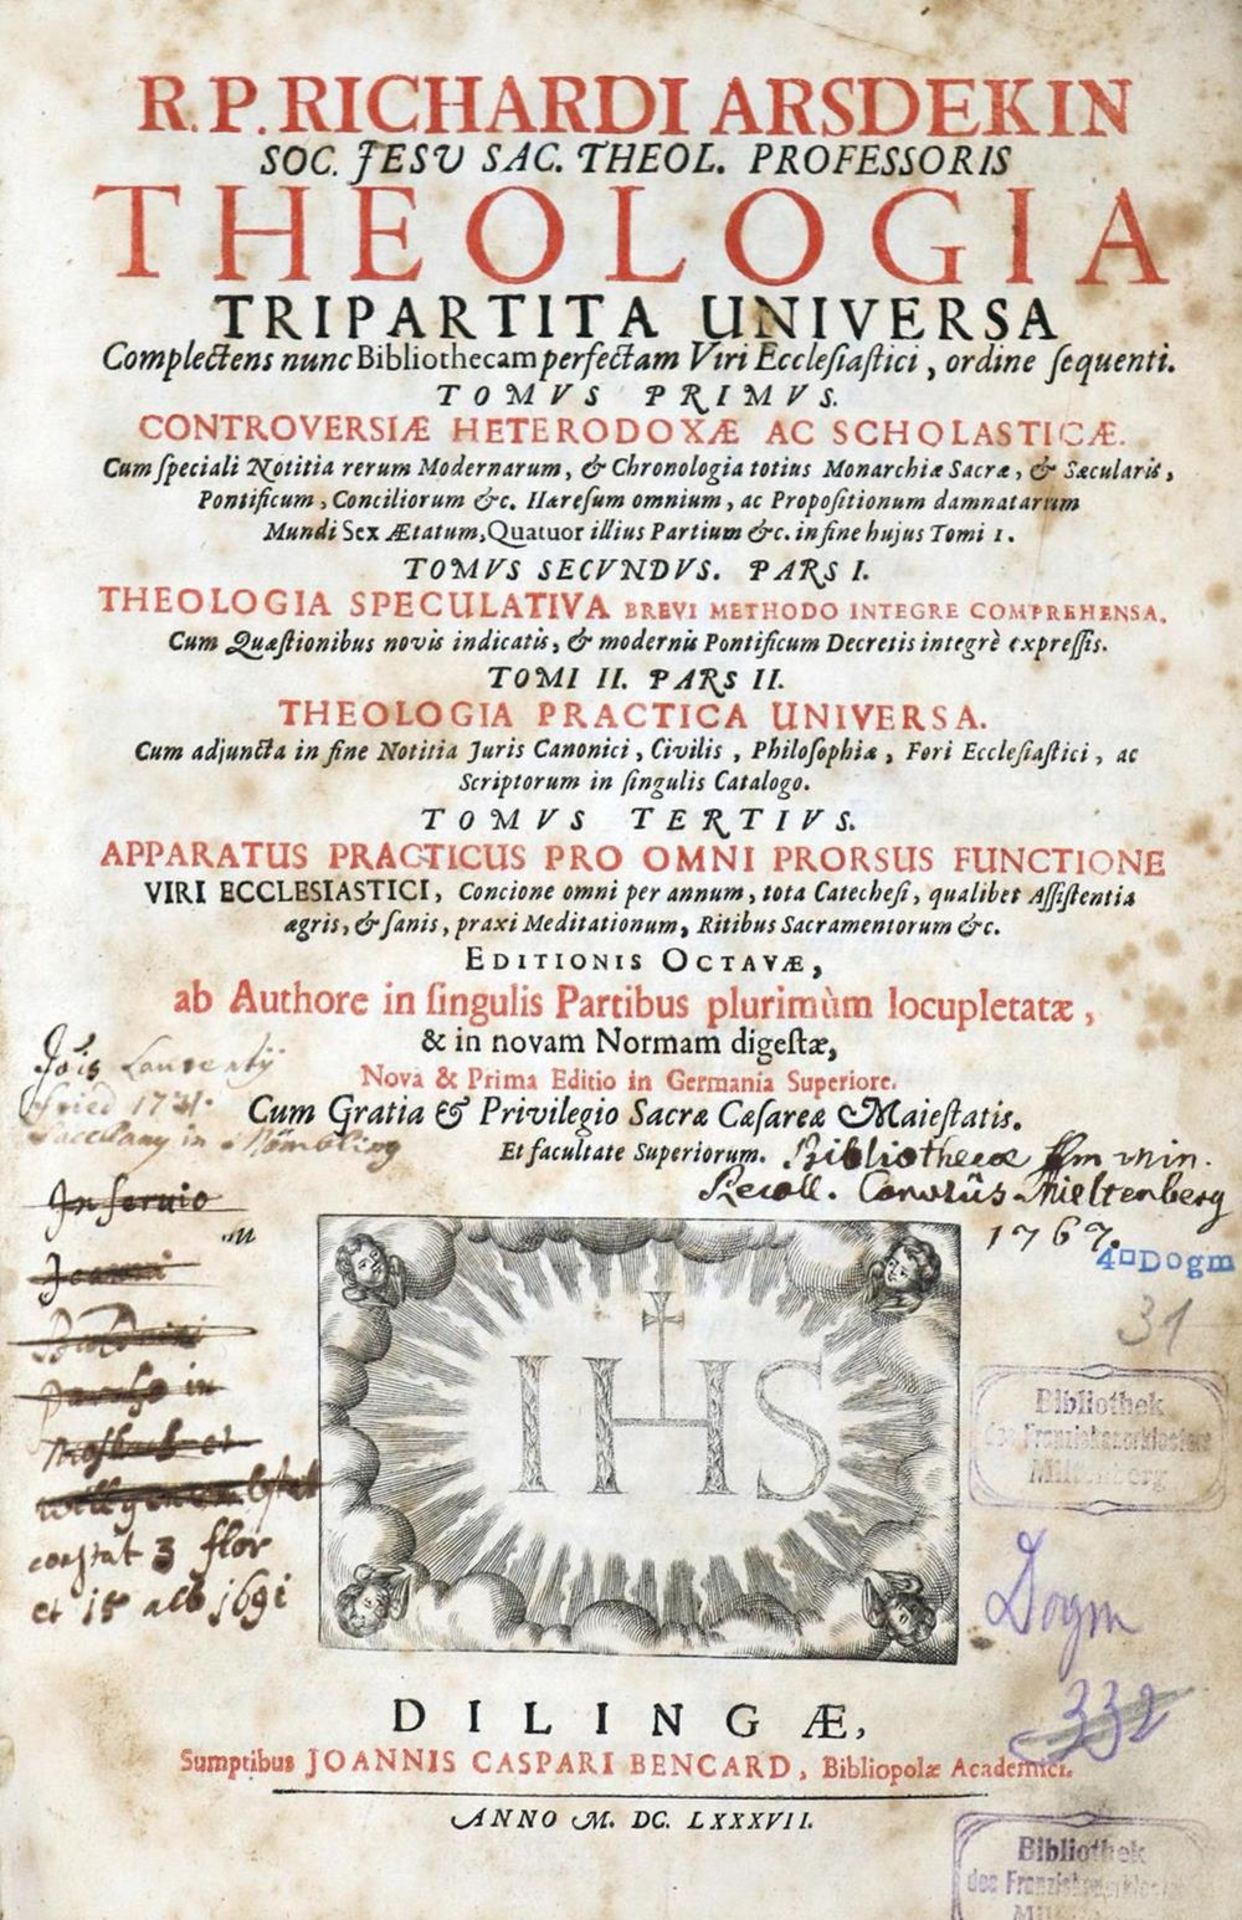 R.P. RICHARDI ARSDEKIN
SOC. JESU SAC. THEOL. PROFESSORIS
THEOLOGIA
TRIPARTITA UNIVERSA
Complectens nunc Bibliothecam perfectam Viri Ecclesiaſtici, ordine ſequenti.
TOMVS PRIMVS.
CONTROVERSIÆ HETERODOXÆ AC SCHOLASTICÆ.
Cum ſpeciali Notitia rerum Modernarum, & Chronologia totius Monarchiæ Sacræ, & Sæcularis,
Pontificum, Conciliorum &c. Hæreſum omnium, ac Propoſitionum damnatarum
Mundi Sex Ætatum, Quatuor illius Partium &c. in fine hujus Tomi 1.
TOMVS SECVNDVS. PARS I.
THEOLOGIA SPECULATIVA BREVI METHODO INTEGRE COMPREHENSA.
Cum Quæſtionibus novis indicatis, & modernis Pontificum Decretis integrè expreſſis.
TOMI II. PARS II.
THEOLOGIA PRACTICA UNIVERSA.
Cum adjuncta in fine Notitia Juris Canonici, Civilis, Philoſophiæ, Fori Eccleſiaſtici, ac
Scriptorum in ſingulis Catalogo.
TOMVS TERTIVS.
APPARATUS PRACTICUS PRO OMNI PRORSUS FUNCTIONE
VIRI ECCLESIASTICI, Concione omni per annum, tota Catecheſi, qualibet Aſſiſtentia
ægris, & ſanis, praxi Meditationum, Ritibus Sacramentorum &c.
EDITIONIS OCTAVÆ,
ab Authore in ſingulis Partibus plurimùm locupletatæ,
& in novam Normam digeſtæ,
Nova & Prima Editio in Germania Superiore.
Cum Gratia & Privilegio Sacræ Cæſareæ Maieſtatis.
Et facultate Superiorum.
Jois Laurentij
1731.
Sacellany in Mömbling
Bibliothecæ min.
Recoll. Miltenberg
1767.
4□Dogm
31
Inservio
Joanni
in
Mosbach et
constat 3 flor
et 15 alb 1691
IHS
Bibliothek
des Franziskanerklosters
Miltenberg
Dogm
332
DILINGÆ,
Sumptibus JOANNIS CASPARI BENCARD, Bibliopolæ Academici.
ANNO M. DC. LXXXVII.
Bibliothek
des Franziskanerkloſ